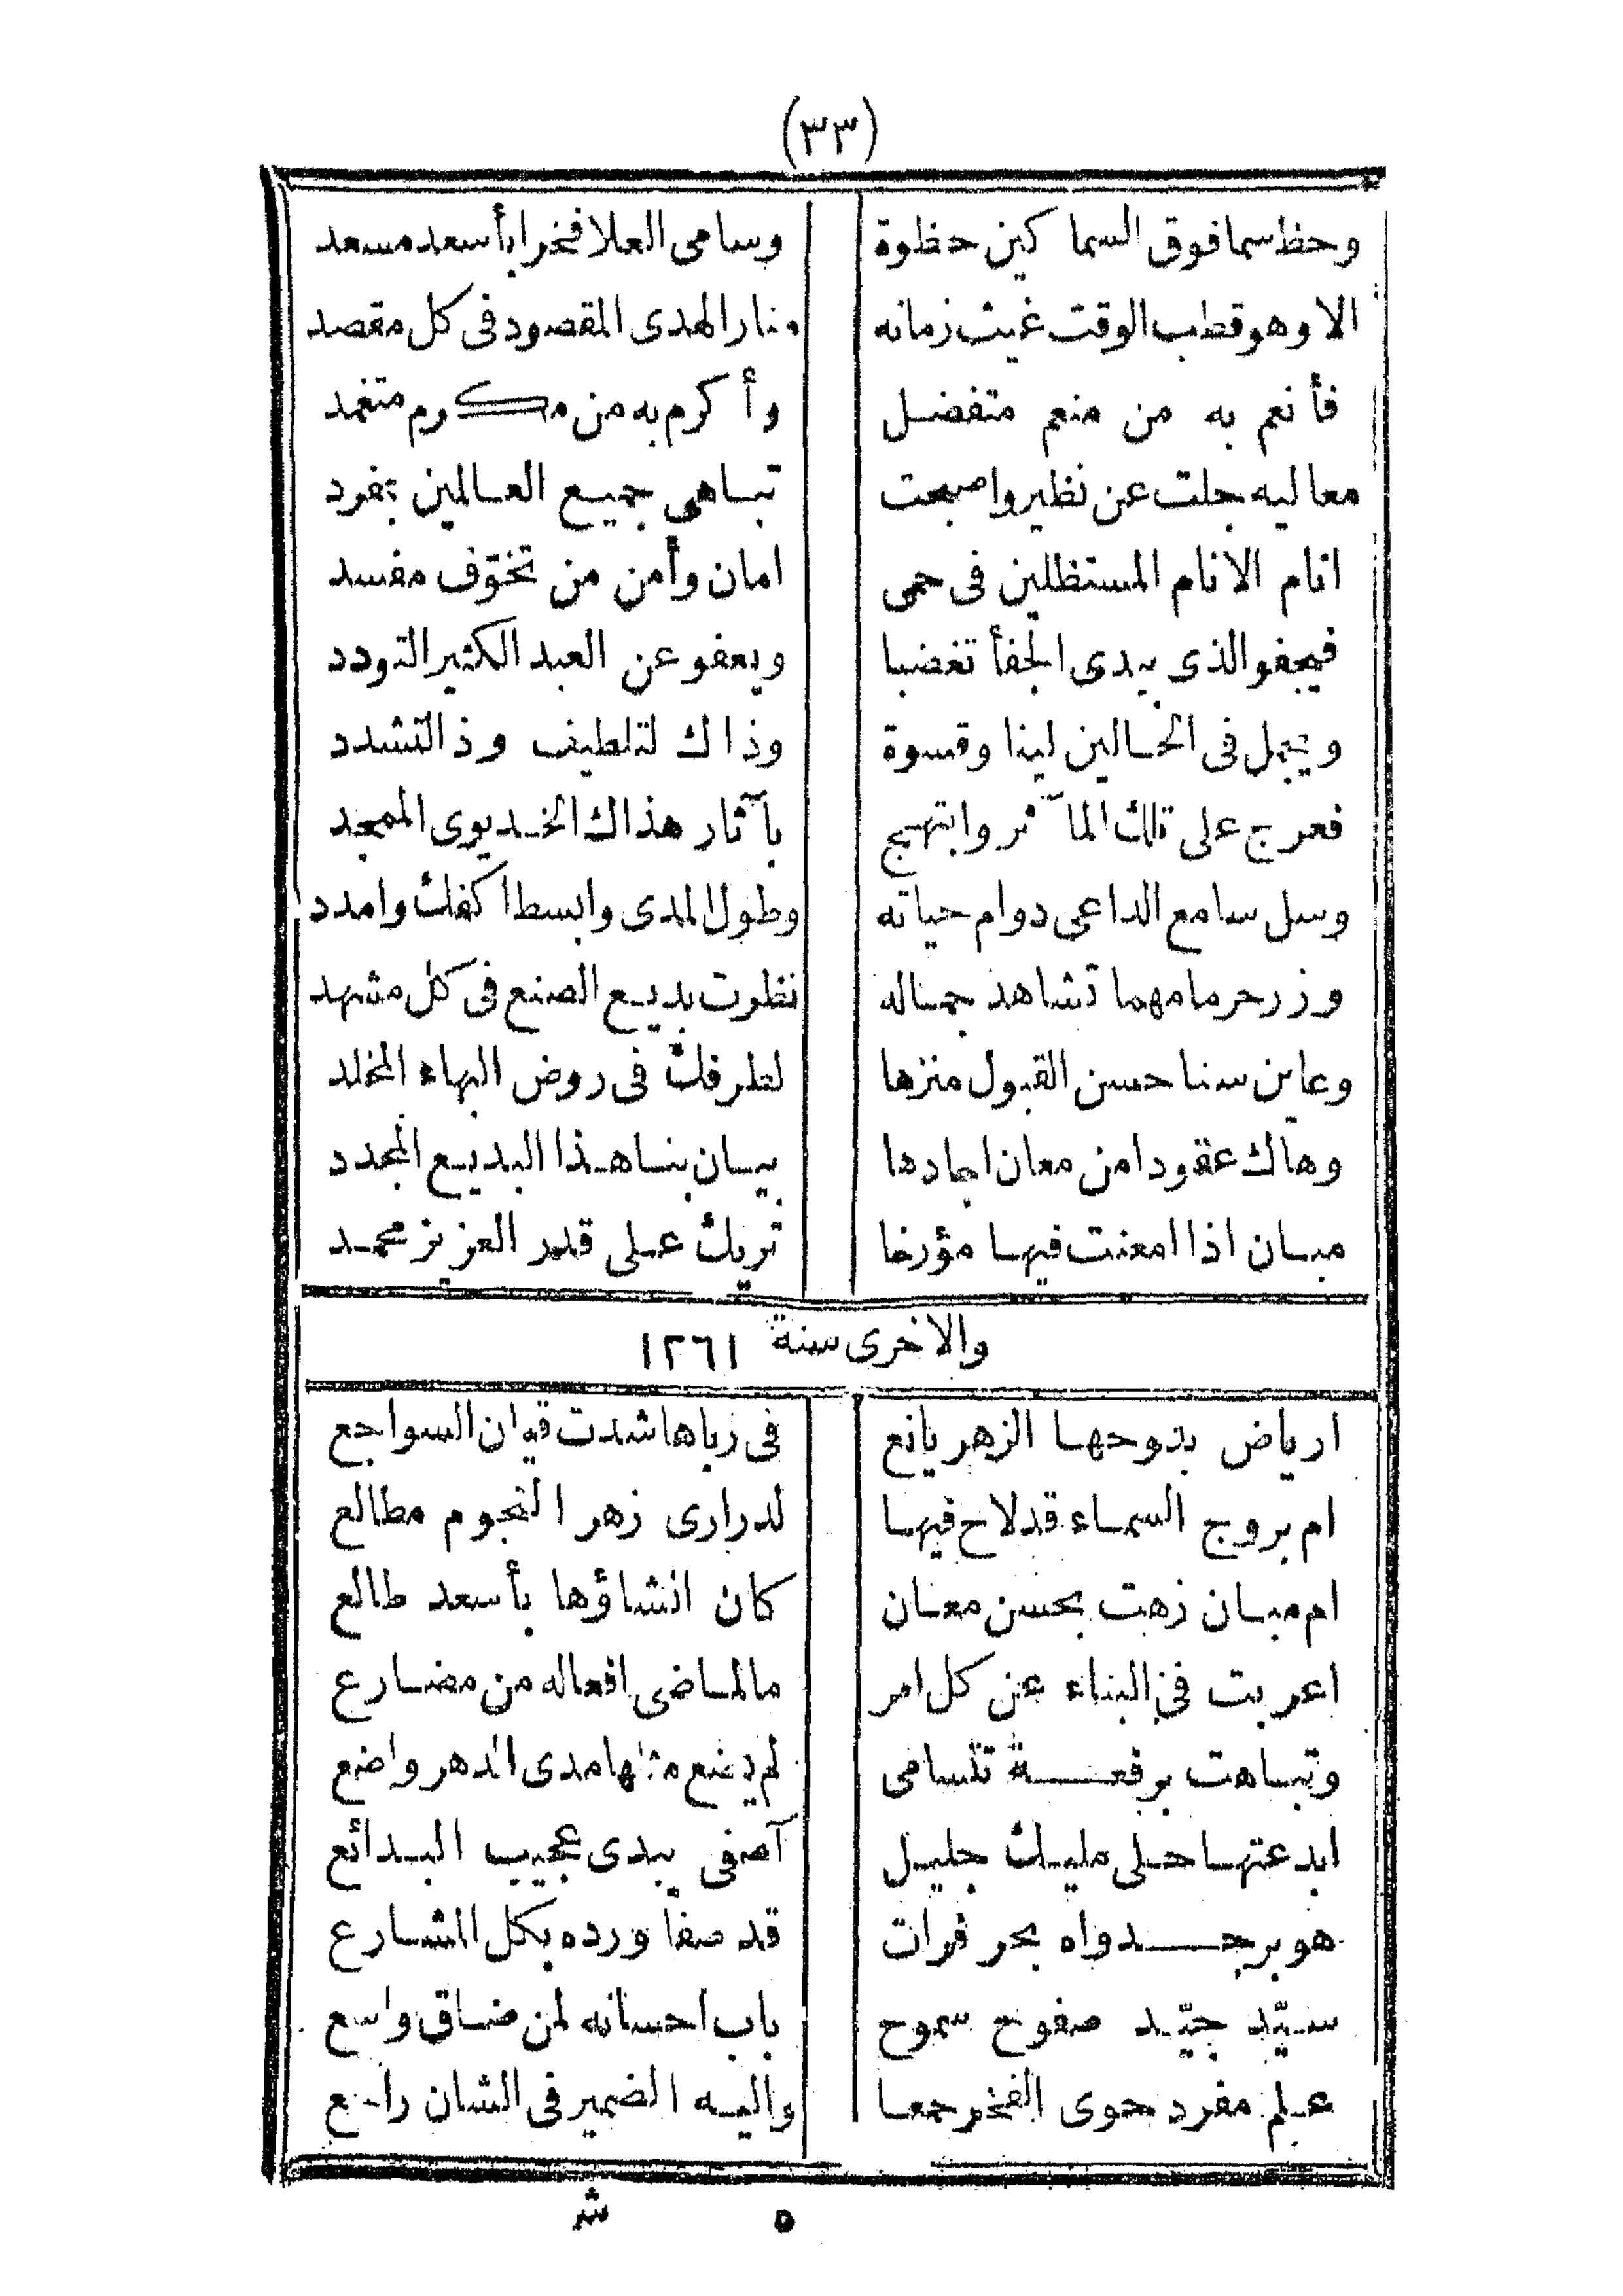 (٣٣)
وحظ سما فوق السما كين حظوة وسامى العلا فخرا بأسعد مسعد
الا وهو قطب الوقت غيث زمانه منار الهدى المقصود فى كل مقصد
فأنعم به من منعم متفضل وأكرم به من مكرم متغمد
معاليه جلت عن نظير واصبحت تباهى جميع العالمين بمفرد
انام الانام المستظلين فى حمى امان وأمن من تخوّف مفسد
فيجفو الذى يبدى الجفأ تغضبا ويعفو عن العبد الكثير التودد
ويجمل فى الحالين لينا وقسوة وذاك لتلطيف وذا لتشدد
فعرج على تلك المآثر وابتهج بآثار هذاك الخديوى الممجد
وسل سامع الداعى دوام حياته وطول المدى وابسط اكفك وامدد
وزر حرما مهما تشاهد جماله نظرت بديع الصنع فى كل مشهد
وعاين سنا حسن القبول منزها لطرفك فى روض البهاء المخلد
وهاك عقودا من معان اجادها بيان بنا هذا البديع المجدد
مبان اذا امعنت فيها مؤرخا تريك على قدر العزيز محمد
والاخرى سنة ١٢٦١
ارياض بدوحها الزهر يانع فى رباها شدت قيان السواجع
ام بروج السماء قد لاح فيها لدرارى زهر النجوم مطالع
ام مبان زهت بحسن معان كان انشاؤها بأسعد طالع
اعربت فى البناء عن كل امر مالماضى افعاله من مضارع
وتباهت برفعة تتسامى لم يضع مثلها مدى الدهر واضع
ابدعتها حلى مليك جليل آصفى يبدى عجيب البدائع
هو بر جدواه بحر فرات قد صفا ورده بكل المشارع
سيّد جيّد صفوح سموح باب احسانه لمن ضاق واسع
علم مفرد حوى الفخر جمعا واليه الضمير فى الشان راجع
٥ شر